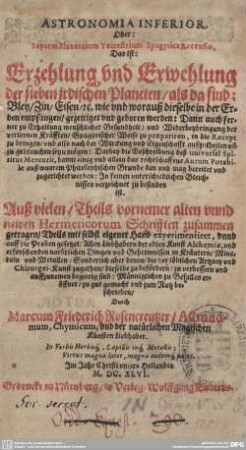 ASTRONOMIA INFERIOR,
Oder:
Septem Planetarum Terrestrium Spagyrica Recensio,
Das ist:
Erzehlung vnd Erwehlung
der sieben irdischen Planeten / als da sind:
Bley / Zin / Eisen / ꝛc. wie vnd worauß dieselbe in der Er-
den empfangen / gezeitiget vnd geboren werden: Dann auch fer-
ne zu Erhaltung menschlicher Gesundheit / vnd Wiederbringung der
verlornen Kräfften / Spagyrischer Weiß zu
zu bringen / vnd alle nach der Würckung vnd Eigenschafft
zu gebrauchen seyn mögen: Darbey die Beschreibung deß universal Spi-
ritus Mercurii, damit einig vnd allein das rechtschaffene Aurum Potabi-
le auß warem Philosophischen Grunde kan vnd mag bereitet vnd
zugerichtet werden: In seinen unterschiedlichen Gleich-
nissen verzeichnet zu befinden
ist.
Auß vielen / Theils vornemer alten vnnd
newen Hermeticorum Schrifften zusammen
getragen / Theils mit selbst eigener Hand experimentiret, vnnd
auff die Proben gesetzet: Allen Liebhabern der edlen Kunst Alchemiæ, vnd
erforschenden natürlichen Dingen vnd Geheimnissen in Kräutern / Mine-
raln vnd
Chirurgei-Kunst zugethan: dieselbe zu befördern / zu verbessern vnd
auffzunemen begierig sind: Männiglichen zu Gefallen er-
öffnet / zu gut gemacht vnd zum Nutz be-
schrieben
Durch
Marcum Friederich Rosencreutzer / Astrono-
mum, Chymicum, vnd der natürlichen Magischen
Künsten Liebhaber.
In Verbis Herbis, Lapidis inq; Metallis;
Virtus magna latet, magna videnda patet.
Im Jahr Christi unsers Heilandts
M. DC. XLVI.
Gedruckt zu Nürnberg / in Verleg. Wolffgang Endters.